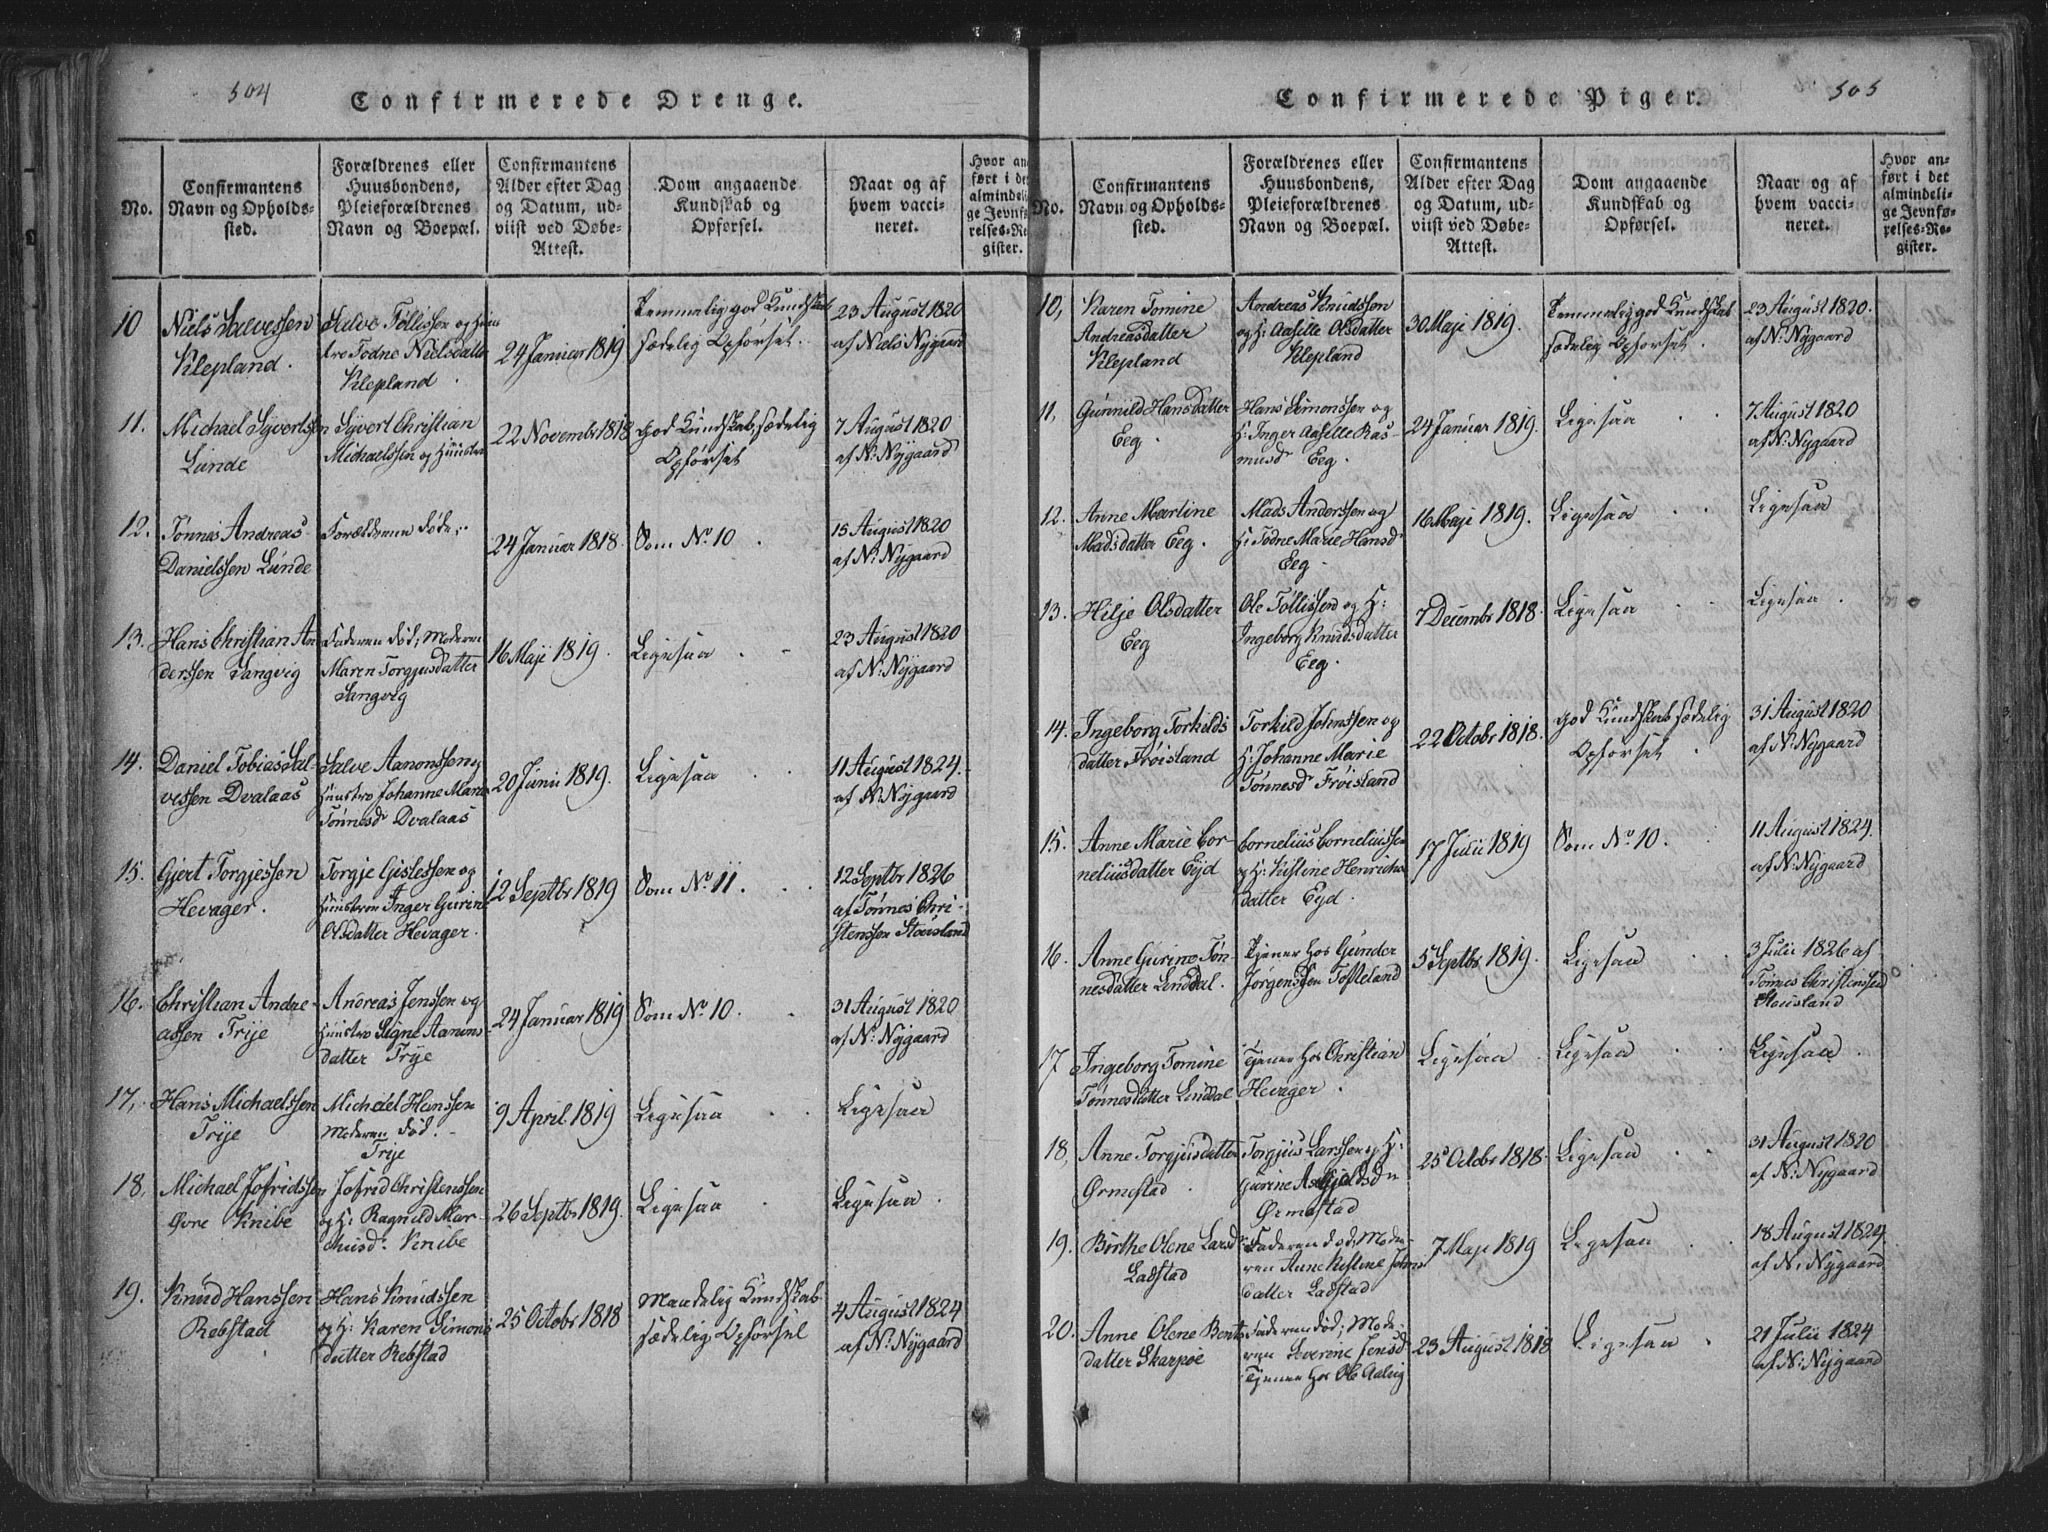 504
Confirmerede Drenge.
No.
Confirmantens
Navn og Opholds-
sted.
Forældrenes eller
Huusbondens,
Pleieforældrenes
Navn og Boepæl.
Confirmantens
Alder efter Dag
og Datum, ud-
viist ved Døbe-
Attest.
Dom angaaende
Kundskab og
Opførsel.
Naar og af
hvem vacci-
neret.
Hvor an
ført i de
almindeli
ge Jevnfø
relses-Re
gister.
10
Niels Salvessen
Klepland.
Salve Tollissen og Huus
tro Todne Nielsdatter
Klepland.
24 Januar 1819
Temmelig god Kundskab
sædelig Opførsel.
23 August 1820
af Niels Nygaard
11.
Michael Syvertsen
Lunde
Syvert Christian
Michaelssen og Huustro
22 Novembr 1818
god Kundskab sædelig
Opførsel
7 August 1820
af N: Nygaard
12.
Tønnes Andreas
Danielssen Lunde
Forældrene døde
24 Januar 1818.
Som No. 10.
15 August 1820
af N: Nygaard
13.
Hans Christian An
derssen Langvig
Faderen død; Moderen
Maren Torgjusdatter
Langvig
16 Maji 1819.
Ligesaa
23 August 1820
af N: Nygaard
14.
Daniel Tobias Sal-
vessen Dvalaas
Salve Aanonssen og
Huustro Johanne Marie
Tønnesd Dvalaas
20 Juni 1819.
Ligesaa
11 August 1824.
af N: Nygaard
15.
Gjert Torgjessen
Hevager.
Torgje Gislessen og
Huustroe Inger Gurine
Olsdatter Hevager.
12 Septbr 1819
Som No. 11.
12 Septbr 1826
af Tønnes Chri-
stenssen Stausland
16.
Christian Andre-
assen Trije
Andreas Jenssen og
Huustro Signe Aanons
datter Trye
24 Januar 1819
Som No. 10.
31 August 1820
af N: Nygaard
17,
Hans Michaelssen
Trije
Michael Hanssen
Moderen død.
Trije
9 April 1819
Ligesaa
Ligesaa
18,
Michael Jofridssen
Øvre Knibe
Jofrid Christenssen
og H: Ragnild Mar-
chusd: Knibe
26 Septbr 1819.
Ligesaa
Ligesaa.
19.
Knud Hanssen
Rebstad
Hans Knudssen
og H: Karen Simons
datter Rebstad
25 Octobr 1818
Maadelig Kundskab
sædelig Opførsel
4 August 1824
af N: Nygaard
505
Confirmerede Piger.
No.
Confirmantens
Navn og Opholds-
sted.
Forældrenes eller
Huusbondens,
Pleieforældrenes
Navn og Boepæl.
Confirmantens
Alder efter Dag
og Datum, ud-
viist ved Døbe-
Attest.
Dom angaaende
Kundskab og
Opførsel.
Naar og af
hvem vacci-
neret.
Hvor an-
ført i det
almindeli-
ge Jevnfø-
relses-Re-
gister.
10,
Karen Tomine
Andreasdatter
Klepland
Andreas Knudssen
og H: Aasille Olsdatter
Klepland
30 Maji 1819.
Temmelig god Kundskab
sædelig Opførsel.
23 August 1820.
af N: Nygaard
11,
Gunnild Hansdatter
Eeg.
Hans Simonssen og
H: Inger Aaselle Ras-
musd Eeg.
24 Januar 1819.
Ligesaa
7 August 1820
af N: Nygaard
12.
Anne Martine
Madsdatter Eeg.
Mads Anderssen og
H: Todne Marie Hansd
Eeg.
16 Maji 1819.
Ligesaa
Ligesaa
13.
Hilje Olsdatter
Eeg
Ole Tollissen og H:
Ingeborg Knudsdatter
Eeg.
7 Decembr 1818.
Ligesaa
Ligesaa.
14.
Ingeborg Torkilds
datter Frøisland
Torkild Johnssen og
H: Johanne Marie
Tønnesd Frøisland
22 Octobr 1818.
god Kundskab sædelig
Opførsel.
31 August 1820
af N: Nygaard
15.
Anne Marie Cor-
neliusdatter Eyd
Cornelius Corneliussen
og H: Kistine Henrichs
datter Eyd.
17 Julii 1819
Som No. 10.
11 August 1824.
af N: Nygaard
16.
Anne Gurine Tøn-
nesdatter Linddal.
Tjener hos Gunder
Jørgenssen Tofteland
5 Septbr 1819.
Ligesaa
3 Julii 1826 af
Tønnes Christenssen
Stausland
17
Ingeborg Tomine
Tønnesdatter Linddal
Tjener hos Christian
Hevager.
Ligesaa
Ligesaa
Ligesaa.
18,
Anne Torgjusdatter
Ørmestad.
Torgjus Larssen og H:
Gurine Askjeldsd
Ørmestad
25 Octobr 1818.
Ligesaa
31 August 1820
af N: Nygaard
19.
Birthe Olene Larsd
Ladstad
Faderen død; Mode-
ren Anne Kistine Johns
datter Ladstad
7 Maji 1819
Ligesaa
18 August 1824.
af N: Nygaard
20.
Anne Olene Bents
datter Skarpøe
Faderen død; Mode-
ren Severine Jensd
Tjener hos Ole Aalvig
23 August 1818
Ligesaa
21 Julii 1824
af N: Nygaard